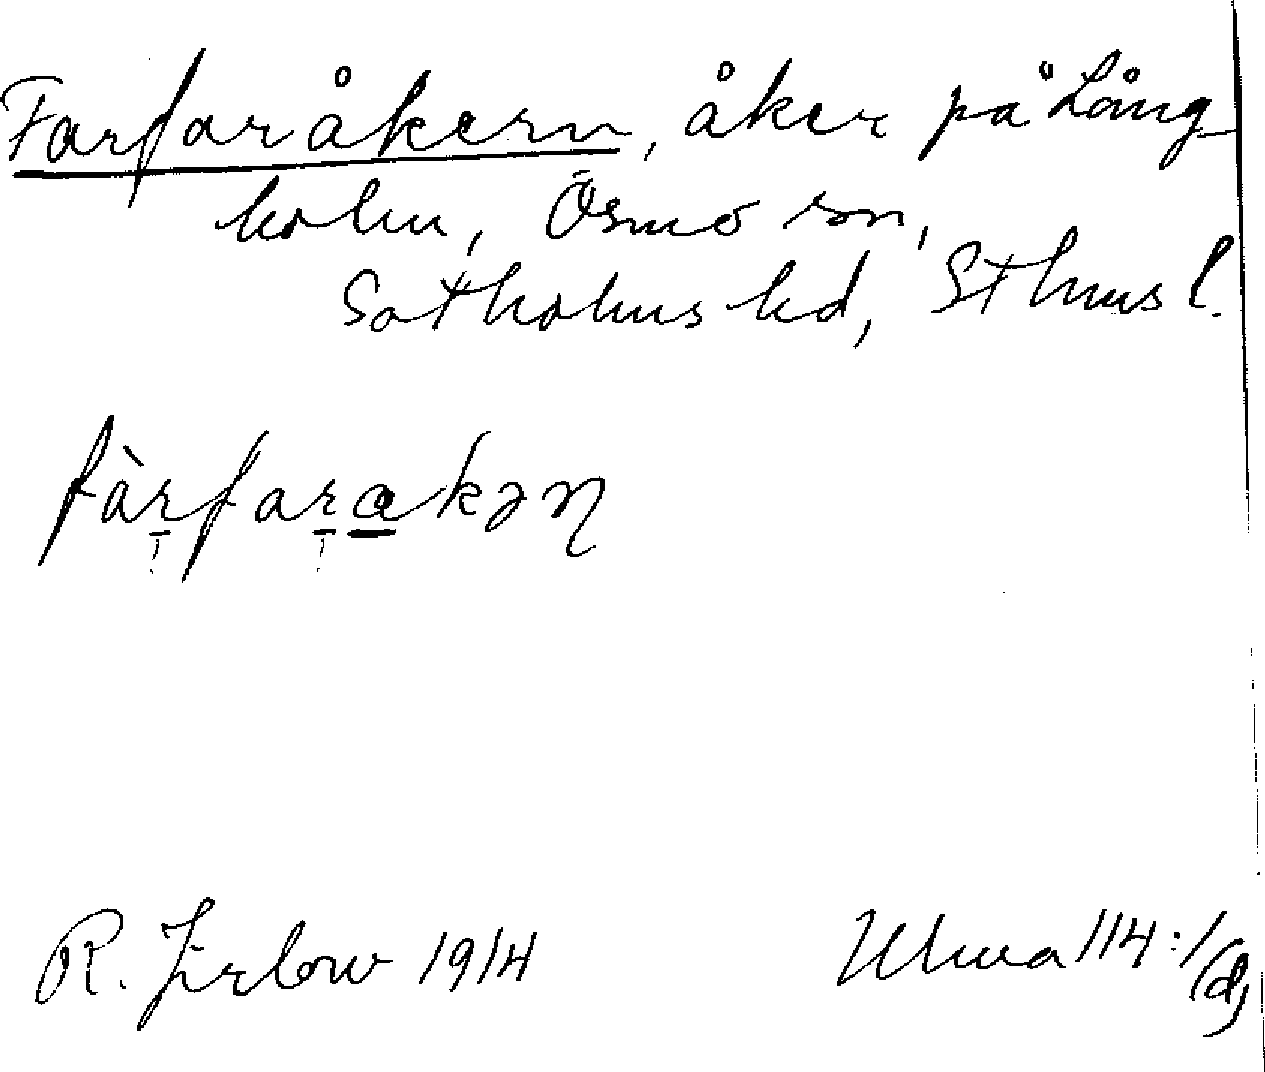 Farfaråkern, åker på Lång-
holm, Ösmo sn,
Sotholms hd, Sthms l.
fàrfarakən
R. Jirlow 1914
Ulma 114:1(d)